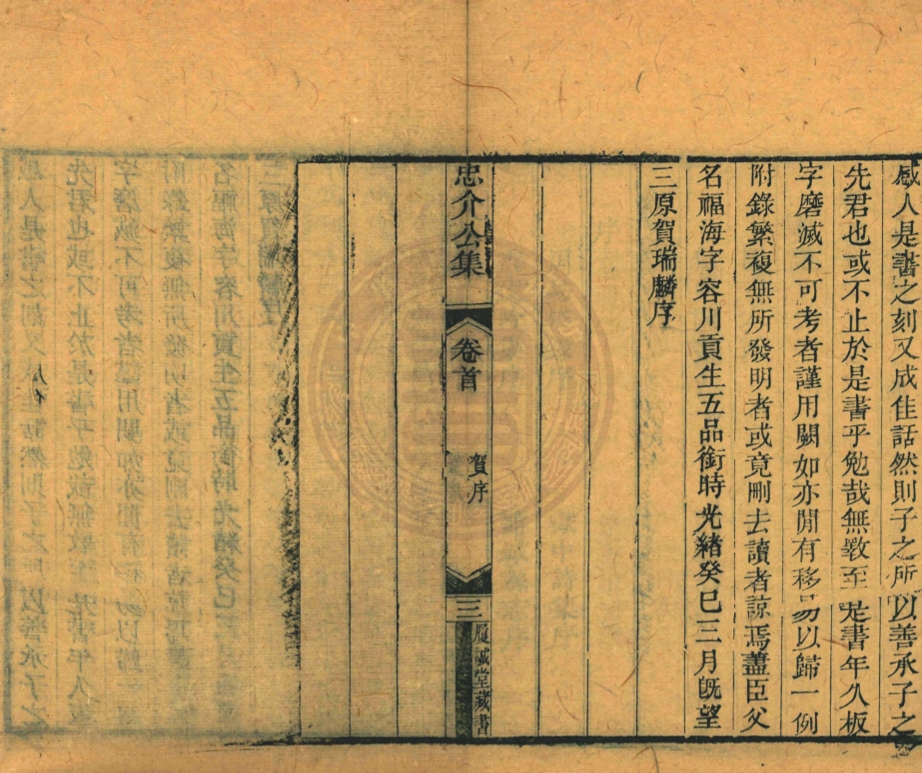 感人是書之刻又成佳話然則子之所以善承子之
先君也或不止於是書乎勉哉無斁至 是書年久板
字磨滅不可考者謹用闕如亦閒有移易以歸一例
附錄繁複無所發明者或竟刪去讀者諒焉藎臣父
名福海字容川貢生五品銜時光緒癸巳三月既望
三原賀瑞麟序
忠介公集
卷首
賀序
三
履誠堂藏書